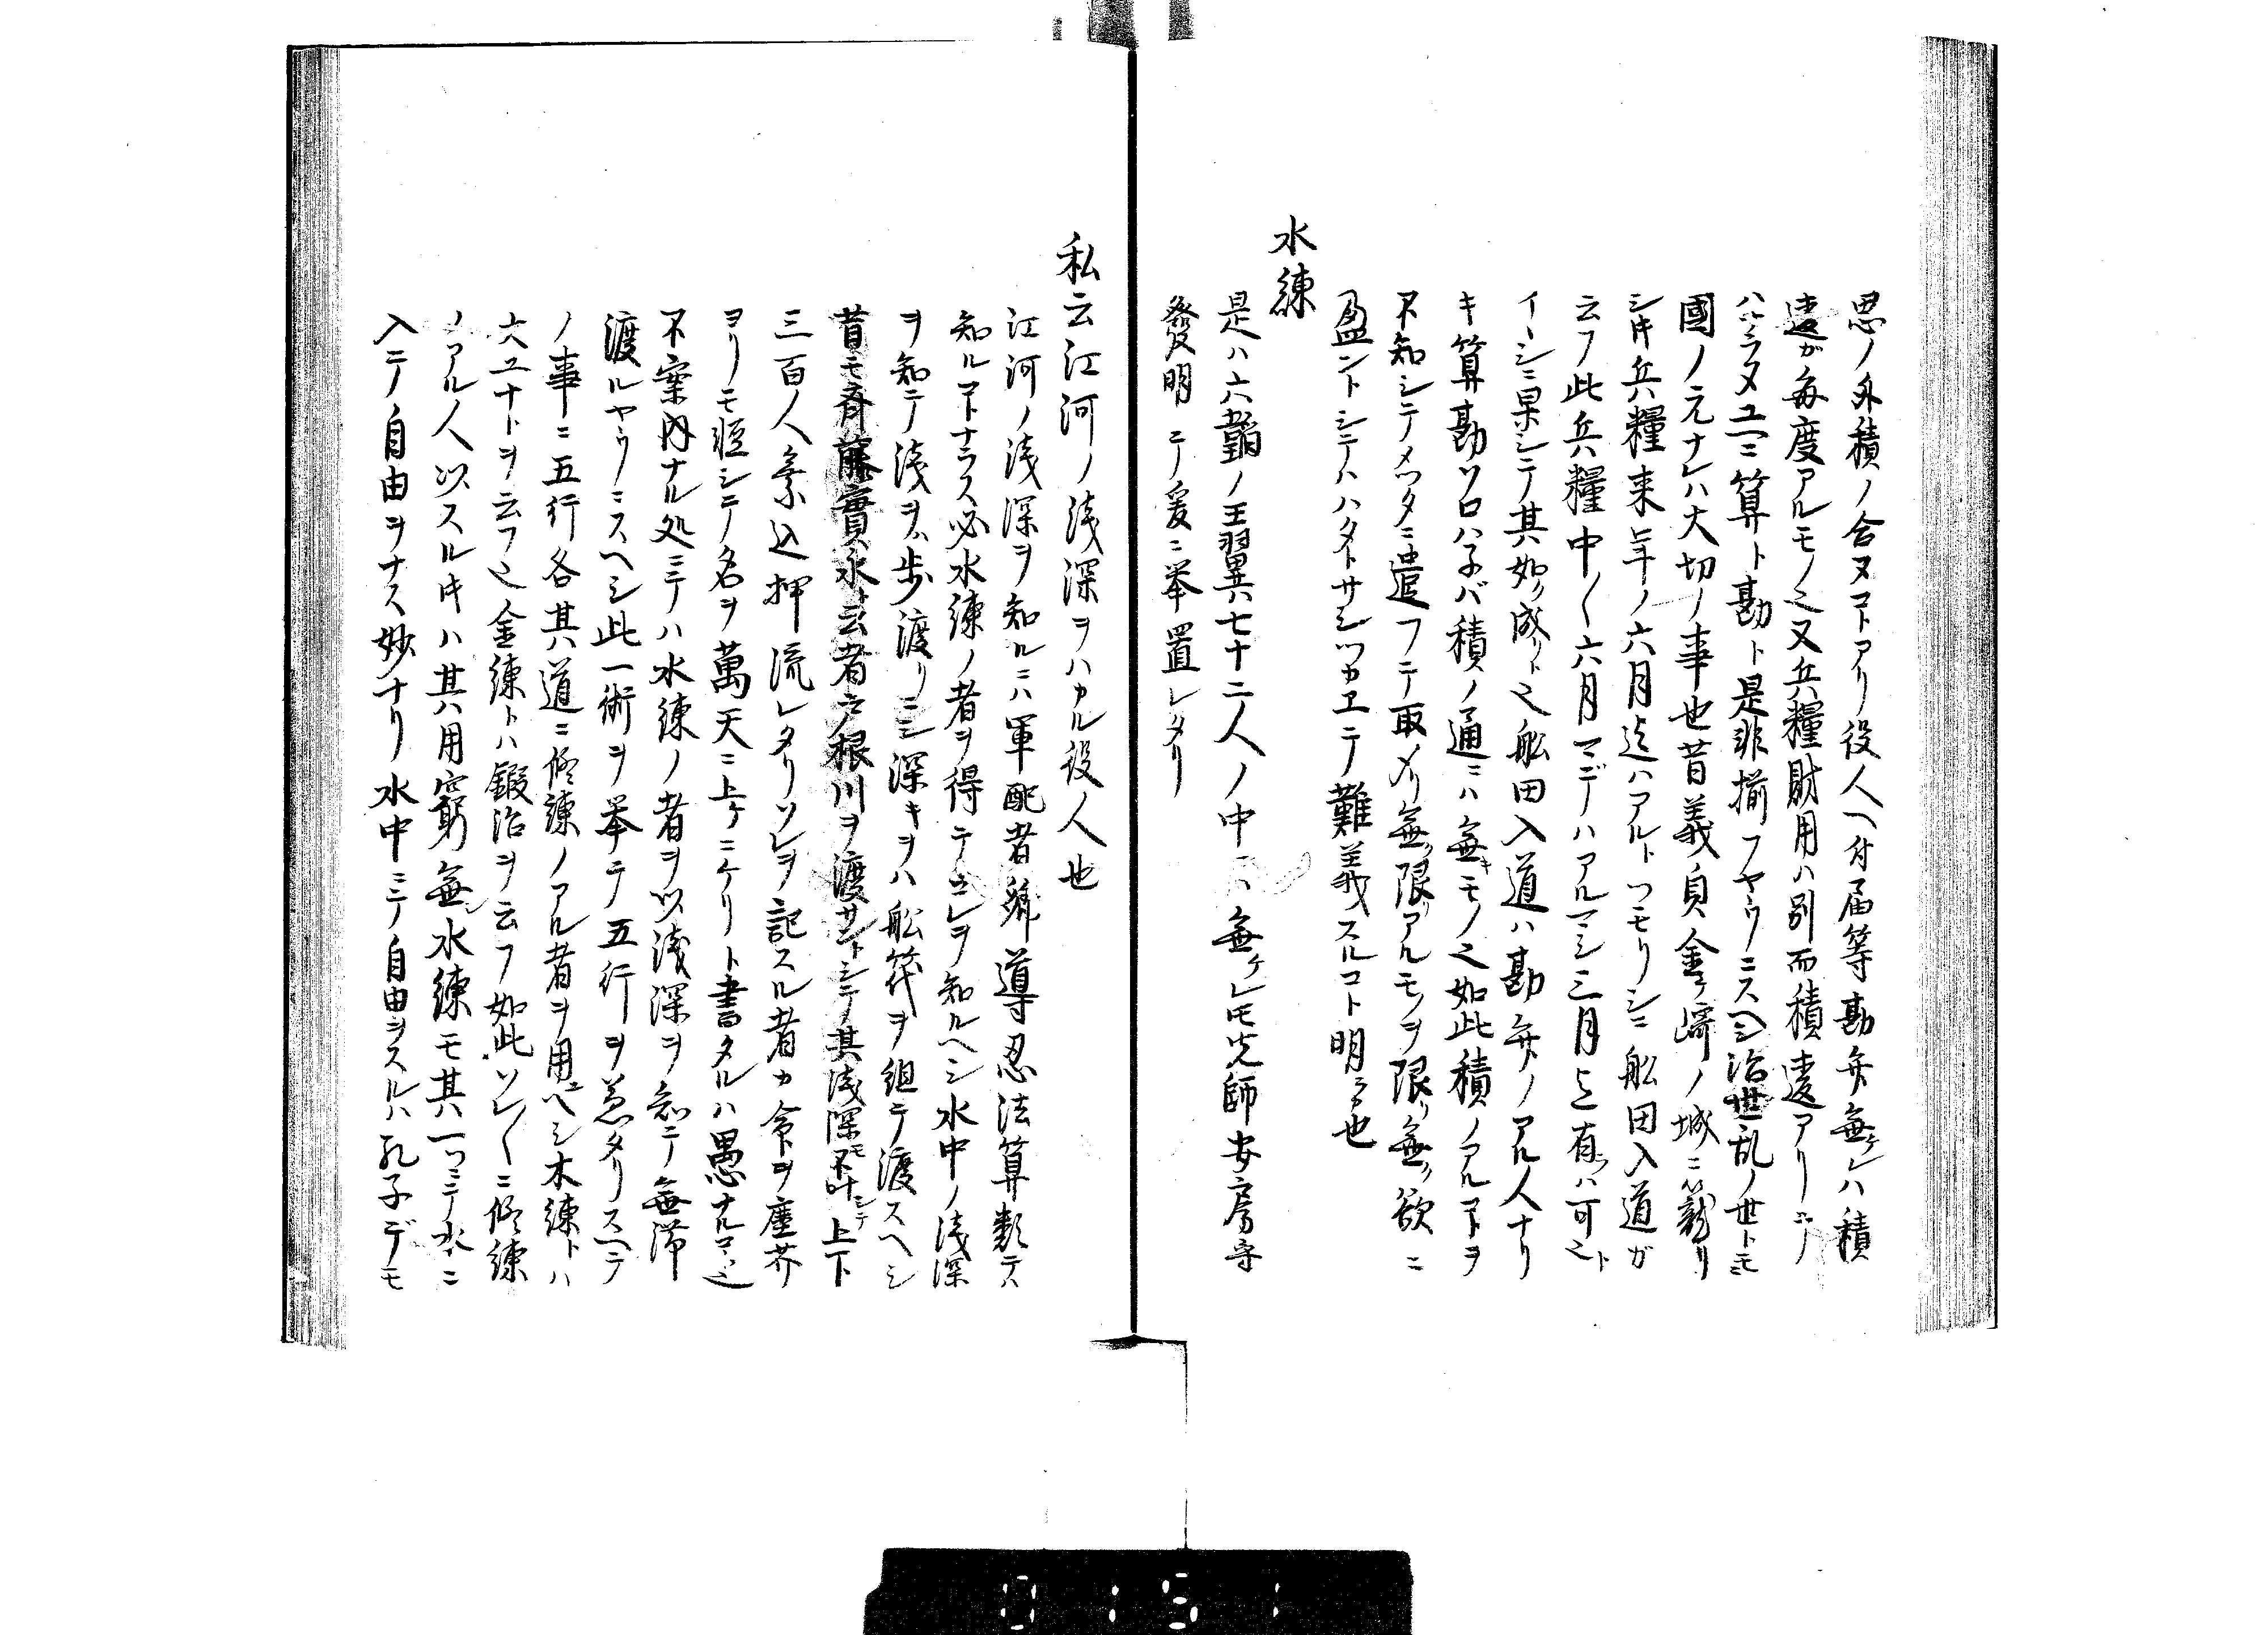 思ノ外積ノ合ヌヿアリ役人ヘ付届等勘弁無ケレハ積
違ガ毎度アルモノ也又兵糧財用ハ別而積違アリテ
ハナラヌユヘニ算ト勘ト是非揃フヤウニスヘシ治世乱ノ世トモニ
國ノ元ナレハ大切ノ事也昔義貞金ケ崎ノ城ニ籠リ
シ時兵糧来年ノ六月迄ハアルトツモリシニ船田入道ガ
云フ此兵糧中〱六月マデハアルマシ三月迄有ラハ可也ト
イヽシニ果シテ其如ク成リト也船田入道ハ勘弁ノアル人ナリ
キ算勘ソロハ子バ積ノ通ニハ無キモノ也如此積ノアルヿヲ
不知シテメツタニ遣フテ取メリ無限リアルモノヲ限リ無ク欲ニ
盈ントシテハハタトサシツカエテ難義スルコト明ラカ也
水練
是ハ六韜ノ王翼七十二人ノ中ニハ無ケレ𪜈先師安房守
發明ニテ爰ニ挙置レタリ
私云江河ノ浅深ヲハカル役人也
江河ノ浅深ヲ知ルニハ軍配者郷導忍法算數テス
知ルヿナラス必水練ノ者ヲ得テコレヲ知ルヘシ水中ノ浅深
ヲ知テ浅ヲハ歩渡リニシ深キヲハ船筏ヲ組テ渡スヘシ
昔モ斉藤實永ト云者戸根川ヲ渡サントシテ其浅深モ不叶シテ上下
三百人乗込押流レタリソレヲ記スル者カ命ヲ塵芥
ヨリモ軽シテ名ヲ萬天ニ上ケニケリト書タルハ愚ナルヿ也
不案内ナル処ニテハ水練ノ者ヲ以浅深ヲ知テ無滞
渡ルヤウニスヘシ此一術ヲ挙テ五行ヲ悉タリスヘテ
ノ事ニ五行各其道ニ修練ノアル者ヲ用ユヘシ木練トハ
大工ナトヲ云フ也金練トハ鍛冶ヲ云フ如此ソレ〱ニ修練
ノアル人以スル時ハ其用窮無シ水練モ其一ツニテ水ニ
入テノ自由ヲナス妙ナリ水中ニテ自由ヲスルハ孔子デモ
0151